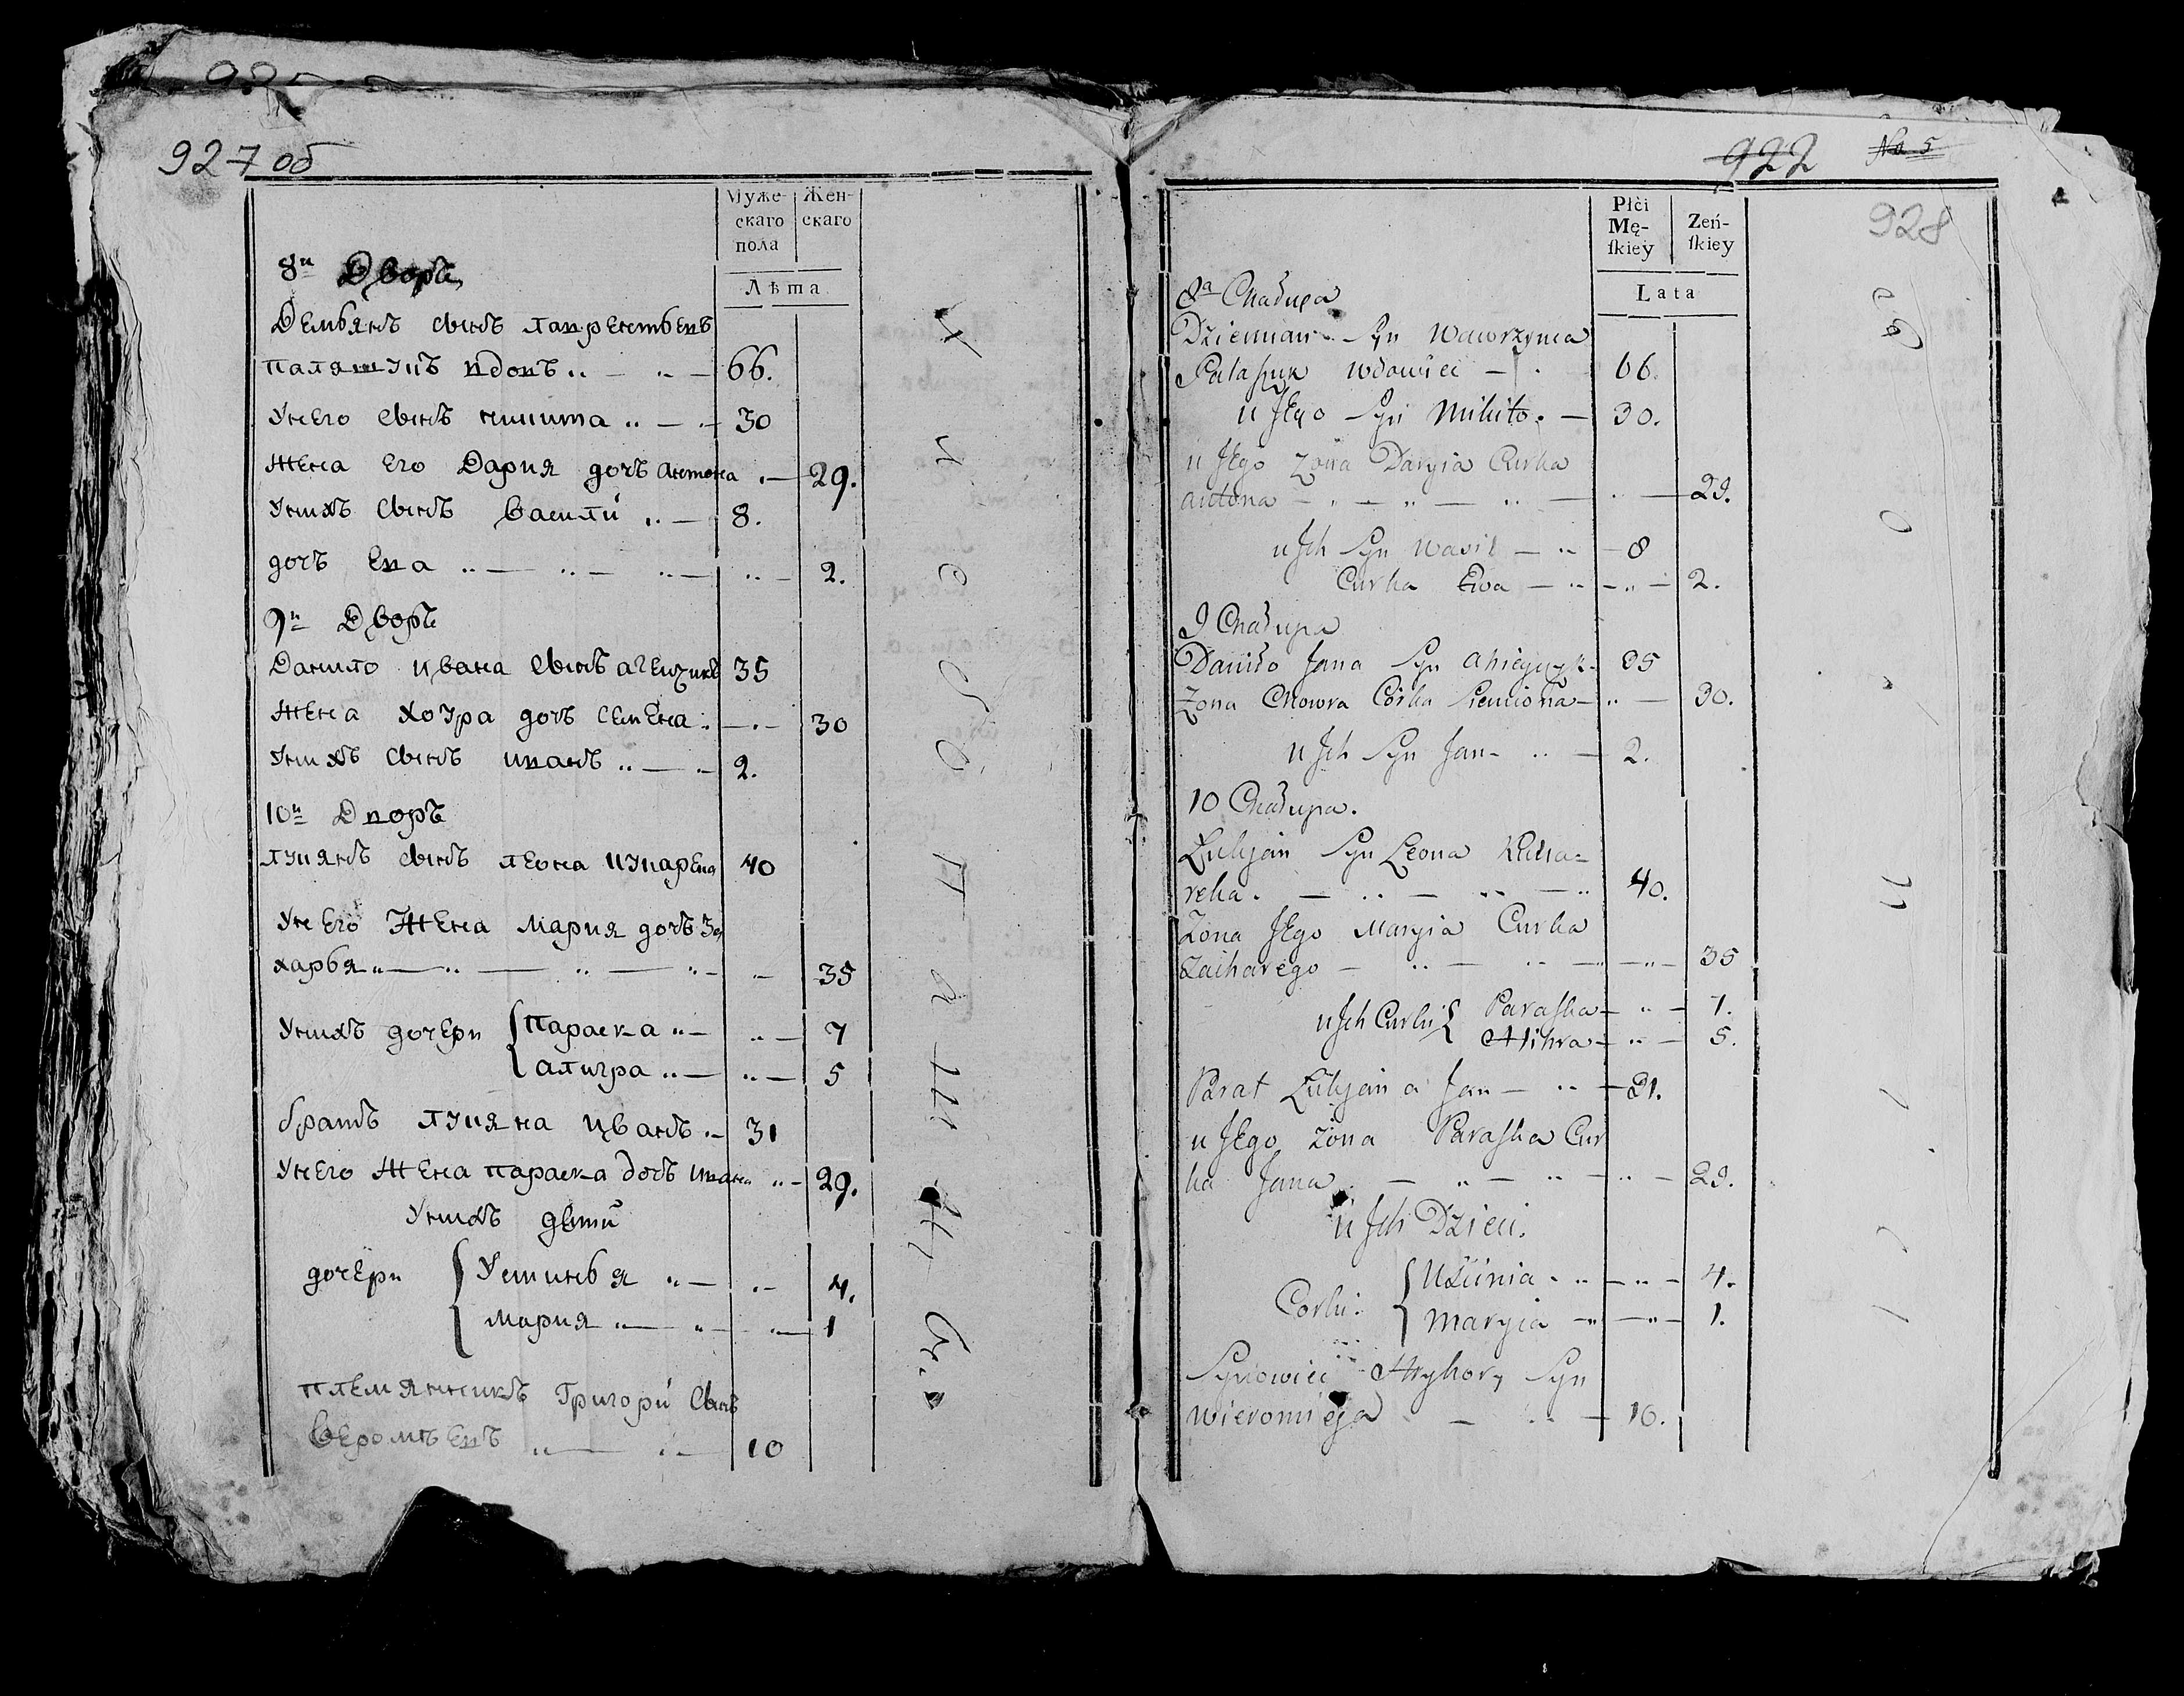 927 об
Муже-
скаго
пола
Жен-
скаго
Лѣта
8й Дворъ
Демьянъ сынъ лаврентьевъ
палящукъ вдовъ 66.
Унего сынъ никита 30
жена Его Дария дочь антона 29.
Унихъ сынъ василй 8.
дочь Ева 2.
9й Дворъ
Данило ивана сынъ 35
жена хоўра дочь семена 30
Унихъ сынъ иванъ 2.
10й Дворъ
лукянъ сынъ леона 40
Унего Жена мария дочь За
харья 35
Унихъ дочери параска 7
алигра 5
братъ лукяна иванъ 31
Унего жена параска дочь ивана 29.
Унихъ дѣти
дочери Устинья 4.
мария 1
племянникъ Григори сынъ
10
922
No 5
928
Płći
Mę-
ſkiey
Zeń-
ſkiey
Lata
8a Chałupa
Dziemian Syn Wawrzynca
Palaſzuk Wdowiec 66.
u Jego Syn Mikito 30.
u Jego Zona Daryia Curka
antona 29.
u Jch Syn Wasil 8
Curka Ewa 2.
9 Chałupa
Daniło Jana Syn 35
Zona Chowra Córka Siemiona 30.
u Jch Syn Jan 2.
10 Chałupa.
Łukjan Syn Leona Kucha=
reka. 40.
Zona Jego Maryia Curka
Zacharego 35
u Jch Curki Paraſka 7.
Ahihra 5.
Brat Łukjana Jan 31.
u Jego zona Paraſka Cur
ka Jana 29.
u Jch Dzieci.
Corki Uścinia 4.
Maryia 1.
Synowiec Hryhory Syn
10.